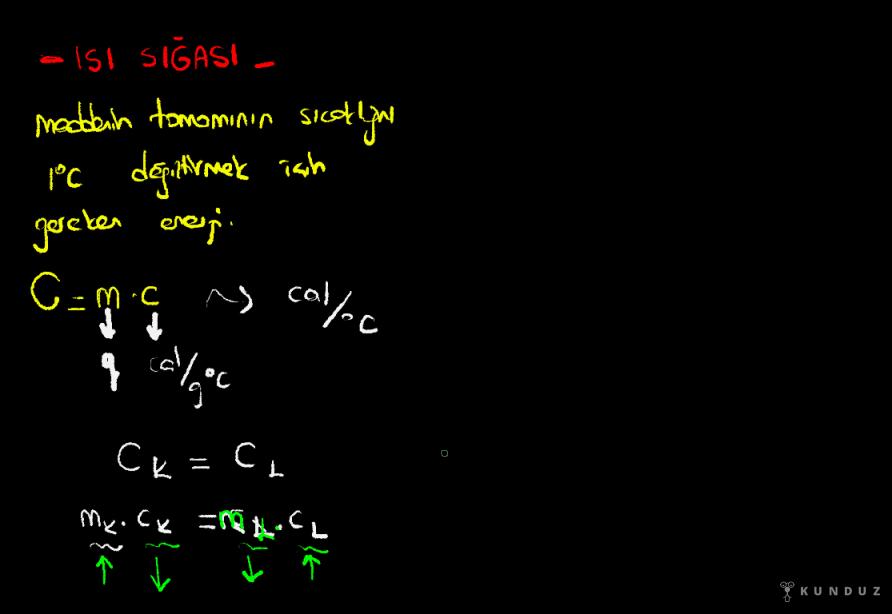 - ISI SIĞASI -
maddenin tamamının sıcaklığını
1°C değiştirmek için
gereken enerji.
C = m . c ⇝ cal/°C
g cal/g°C
C K = C L
m K . c K = m L . c L
KUNDUZ